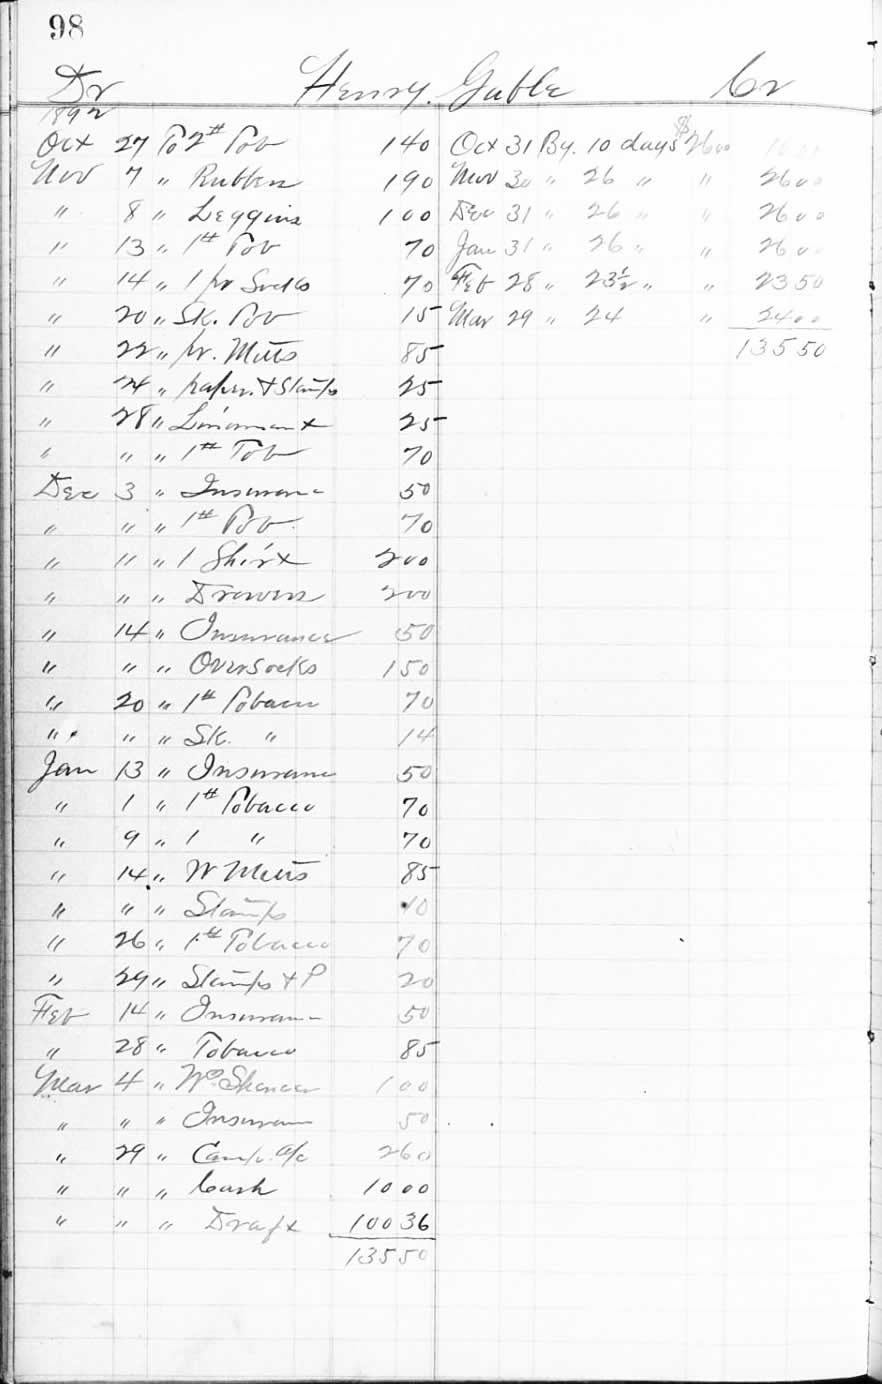 98
Dr Henry Gable Cr
1892
Oct 27 To 2# Tob 140 Oct 31 By. 10 days $2600 10
Nov 7 " Rubbers 190 Nov 30 " 26 " " 2600
" 8 " Leggins 100 Dec 31 " 26 " " 2600
" 13 " 1# Tob 70 Jan 31 " 26 " " 2600
" 14 " 1 pr Socks 70 Feb 28 " 23½ " " 2350
" 20 " Sk. Tob 15 Mar 29 " 24 " 2400
" 22 " pr. Mitts 85 13550
" 24 " paper. & Stamps 25
" 28 " Linament 25
" " " 1# Tob 70
Dec 3 " Insurance 50
" " " 1# Tob. 70
" " " 1 Shirt 200
" " " Drawers 200
" 14 " Insurance 50
" " " Oversocks 150
" 20 " 1# Tobacco 70
" " " Sk. " 14
Jan 13 " Insurance 50
" 1 " 1# Tobacco 70
" 9 " 1 " 70
" 14 " Mitts 85
" " " Stamps 10
" 26 " 1# Tobacco 70
" 29 " Stamps & P 20
Feb 14 " Insurance 50
" 28 " Tobacco 85
Mar 4 " Wm Spencer 100
" " " Insurance 50
" 29 " Camp. a/c 260
" " " Cash 1000
" " " Draft 10036
13550